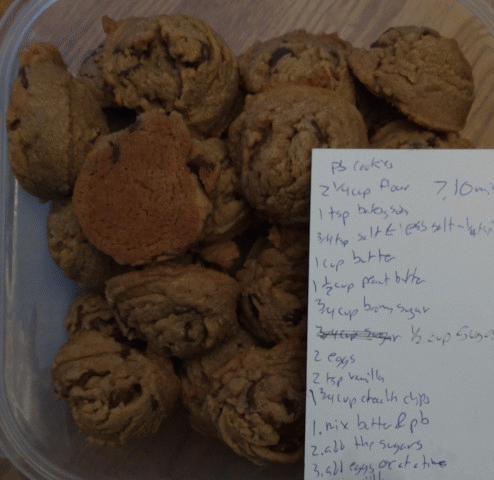 pb cookies
2 1/4 cup flour 7,10 mi
1 tsp baking soda
3/4 tsp salt ← less salt
1 cup butter
1 1/2 cup peanut butter
3/4 cup brown sugar
3/4 cup sugar 1/2 cup sugar
2 eggs
2 tsp vanilla
1 3/4 cup choc chips
1. mix butter & pb
2. add the sugars
3. add eggs one at a time